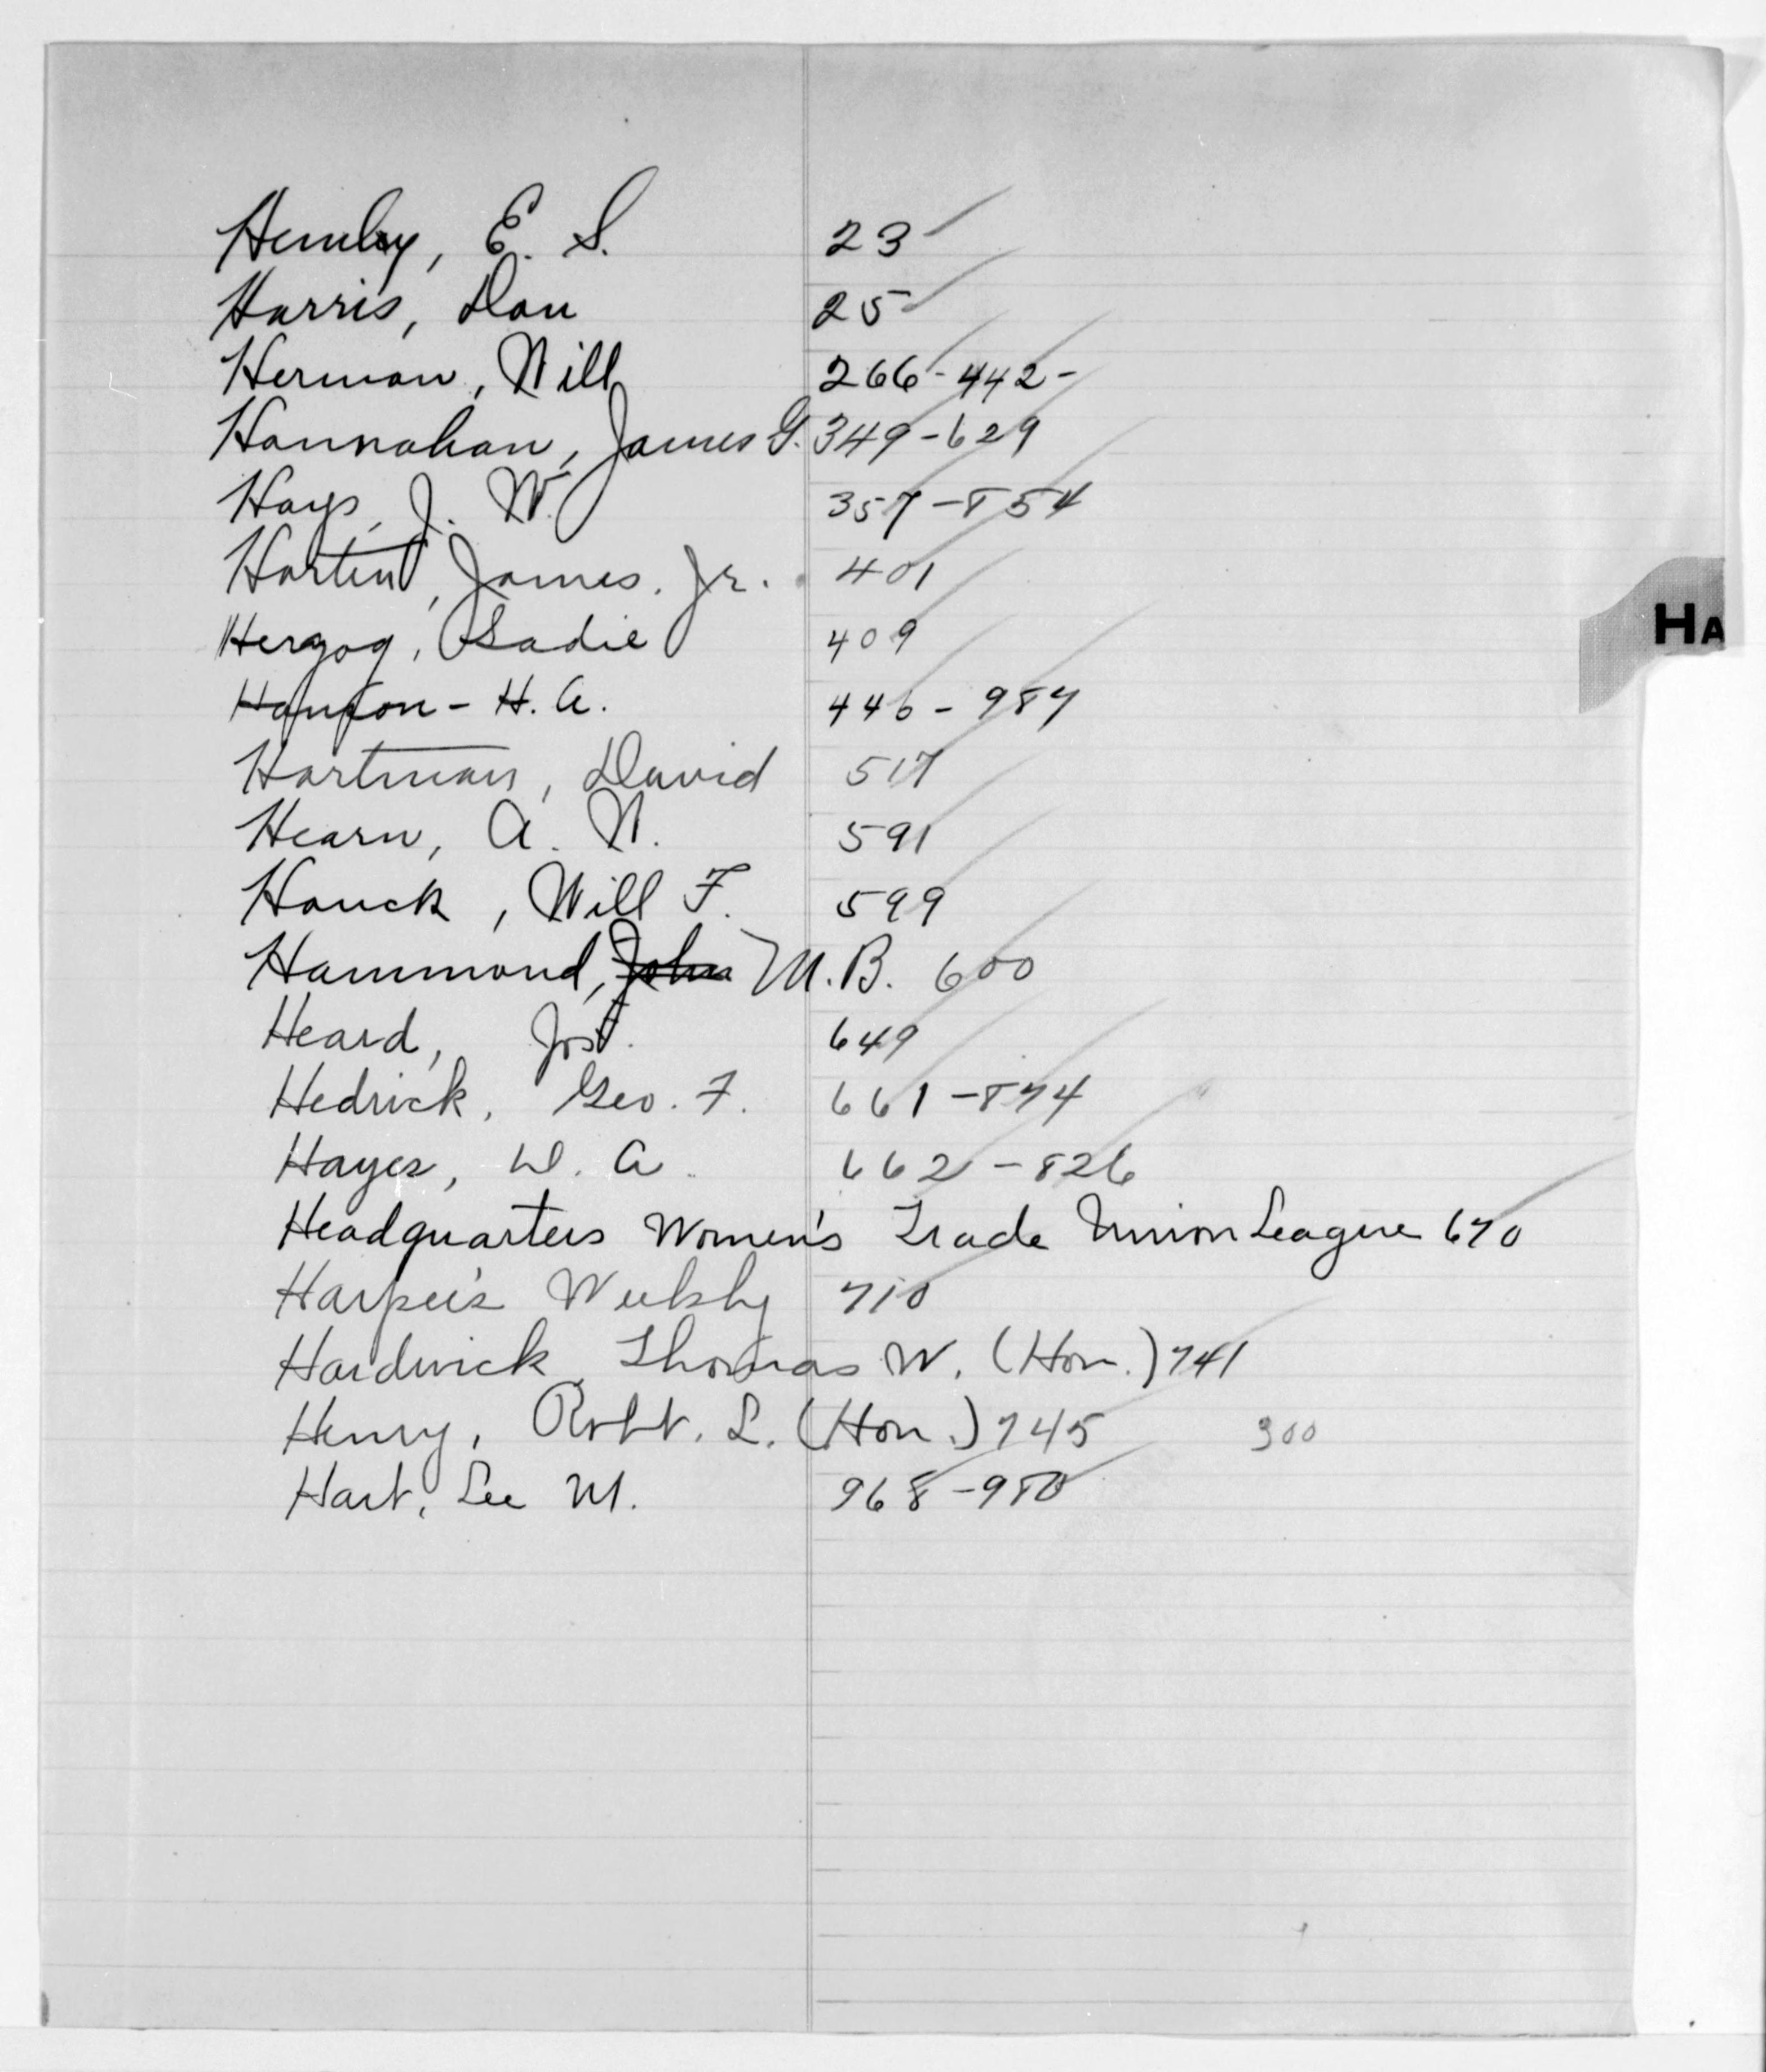 Hemley, E. S. 23
Harris, Dan 25
Herman, Will 266-442-
Hannahan, James G. 349-629
Hays, J. W. 357-854
Hartin, James, Jr. 401
HA
Herzog, Sadie 409
H. A. 446-987
Hartman, David 517
Hearn, A. N. 591
Hauck, Will F. 599
Hammond, John M. B. 600
Heard, Jos. 649
Hedrick, Geo. F. 661-874
Hayes, D. A. 662-826
Headquarters Women's Trade Union League 670
Harper's Weekly 710
Hardwick, Thomas W. (Hon.) 741
Henry, Robt. L. (Hon.) 745 300
Hart, Lee M. 968-980